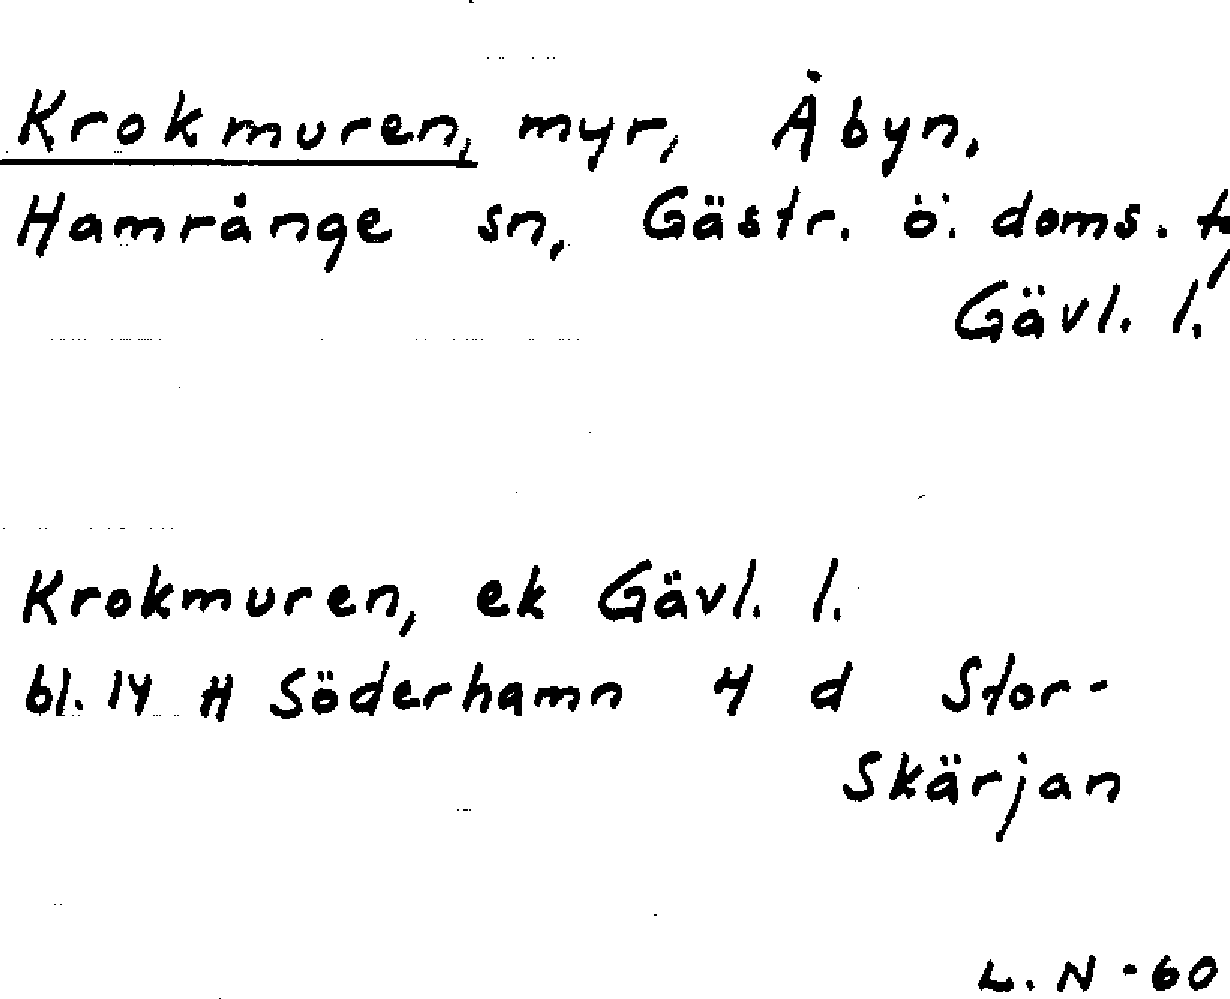 Krokmuren, myr, Åbyn,
Hamrånge sn, Gästr. ö. doms.
Gävl. l.
Krokmuren, ek Gävl. l.
bl. 14 H Söderhamn 4 d Stor-
Skärjan
L. N - 60